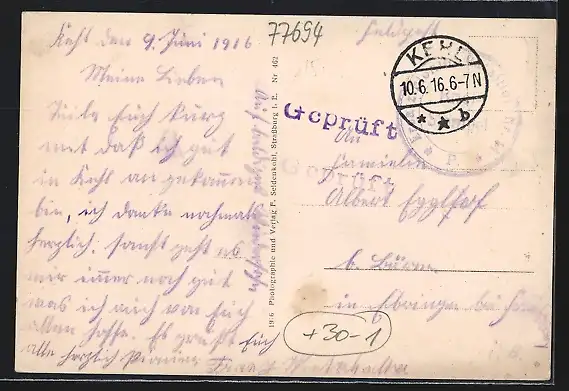 Kehl den 9. Juni 1916
Meine Lieben
Teile Euch kurz
mit daß ich gut
in Kehl angekommen
bin, ich danke nochmals
herzlich. Sonst geht es
mir immer noch gut
was ich auch von Euch
allen hoffe. Es grüßt Euch
alle herzlich
Auf baldiges Wiedersehn
1916 Photographie und Verlag F. Seidenkohl, Straßburg i. E. Nr 462
77694
Feldpost
KEHL
10.6.16.6-7N
* * b
Geprüft
Geprüft
An
Familie
Albert
b.
in bei
+30-1